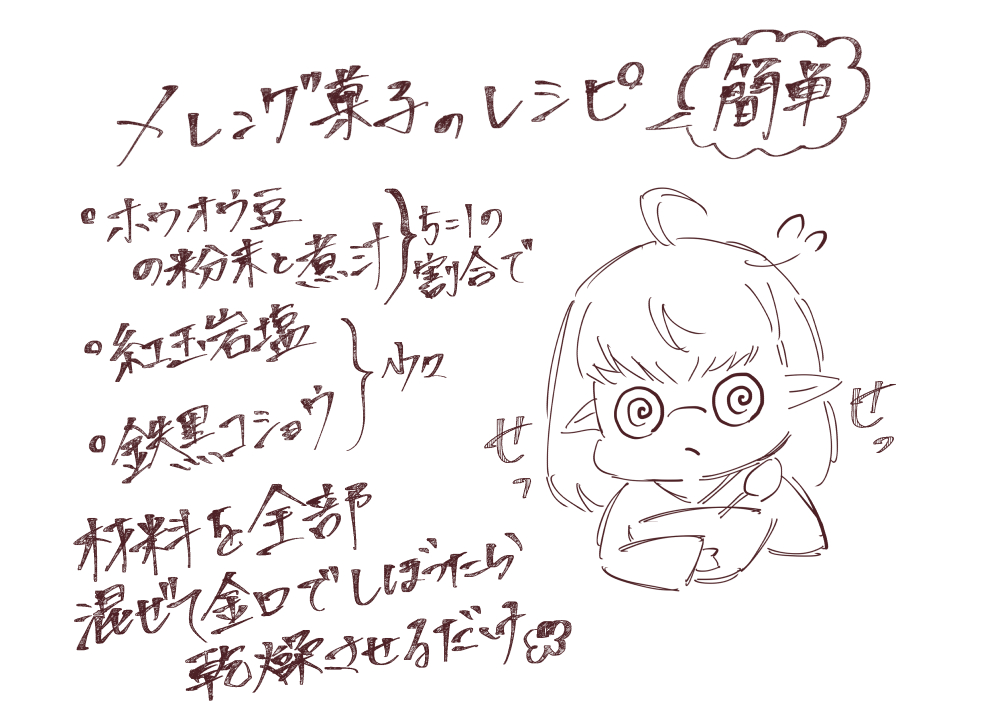 メレンゲ菓子のレシピ
簡単
ホウオウ豆
の粉末と煮汁
5:1の
割合で
紅玉岩塩
鉄黒コショウ
少々
材料を全部
混ぜて金口でしぼったら
乾燥させるだけ
せっ
せっ